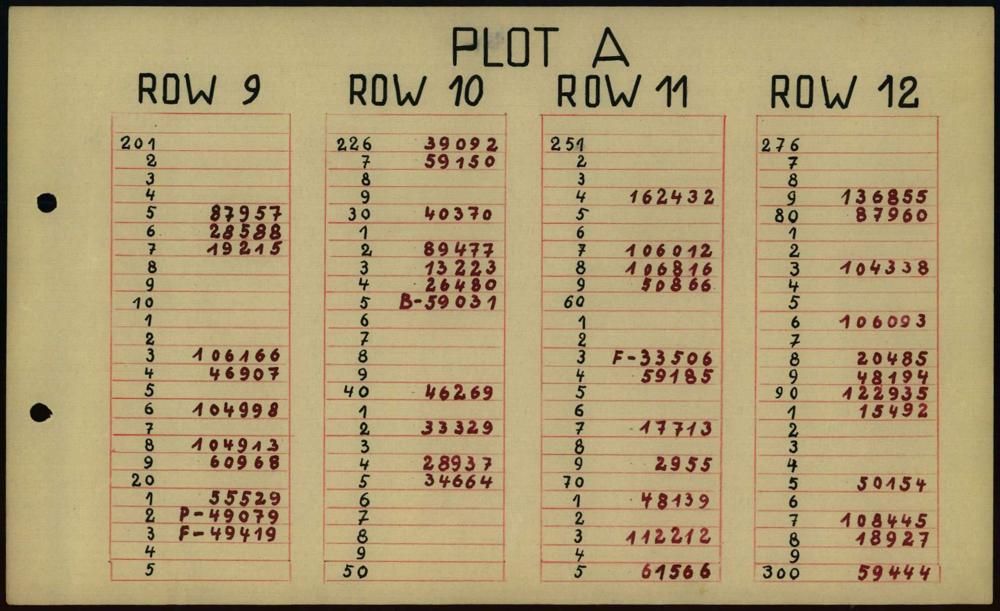 PLOT A
ROW 9 ROW 10 ROW 11 ROW 12
201 226 39092 251 276
2 7 59150 2 7
3 8 3 8
4 9 4 162432 9 136855
5 87957 30 40370 5 80 87960
6 28588 1 6 1
7 19215 2 89477 7 106012 2
8 3 13223 8 106816 3 104338
9 4 26480 9 50866 4
10 5 B-59031 60 5
1 6 1 6 106093
2 7 2 7
3 106166 8 3 F-33506 8 20485
4 46907 9 4 59185 9 48194
5 40 46269 5 90 122935
6 104998 1 6 1 15492
7 2 33329 7 17713 2
8 104913 3 8 3
9 60968 4 28937 9 2955 4
20 5 34664 70 5 50154
1 55529 6 1 48139 6
2 P-49079 7 2 7 108445
3 F-49419 8 3 112212 8 18927
4 9 4 9
5 50 5 61566 300 59444